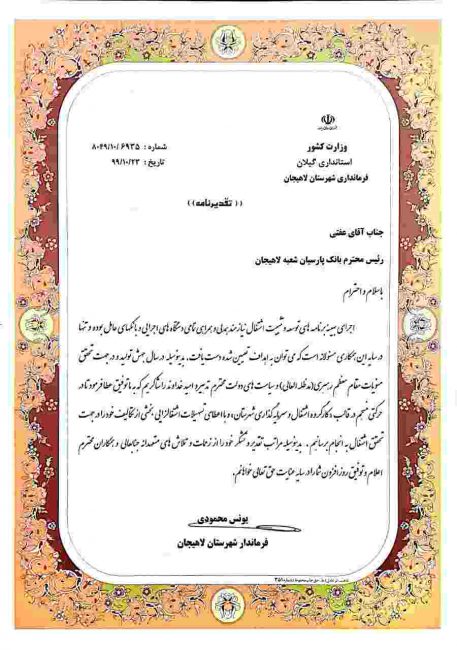 وزارت کشور
استانداری گیلان
فرمانداری شهرستان لاهیجان
شماره : ۸۰۴۹/۱۰/۶۹۳۵
تاریخ : ۹۹/۱۰/۲۳
(( تقدیرنامه ))
جناب آقای عفتی
رئیس محترم بانک پارسیان شعبه لاهیجان
باسلام و احترام
اجرای بهینه برنامه های توسعه و تثبیت اشتغال نیازمند همدلی و همراهی تمامی دستگاه های اجرایی و بانکهای عامل بوده و تنها
در سایه این همکاری مسئولانه است که می توان به اهداف تعیین شده دست یافت. بدینوسیله در سال جهش تولید و در جهت تحقق
منویات مقام معظم رهبری (مدظله العالی) و سیاست های دولت محترم تدبیر و امید خداوند را شاکریم که به ما توفیق عطا فرمود تا در
حرکتی منسجم در قالب کارگروه اشتغال و سرمایه گذاری شهرستان، و با اعطای تسهیلات اشتغالزایی بخشی از تکالیف خود را در جهت
تحقق اشتغال به انجام برسانیم. بدینوسیله مراتب تقدیر و تشکر خود را از زحمات و تلاش های متعهدانه جنابعالی و همکاران محترم
اعلام و توفیق روزافزون شما را در سایه عنایت حق تعالی خواهانم.
یونس محمودی
فرماندار شهرستان لاهیجان